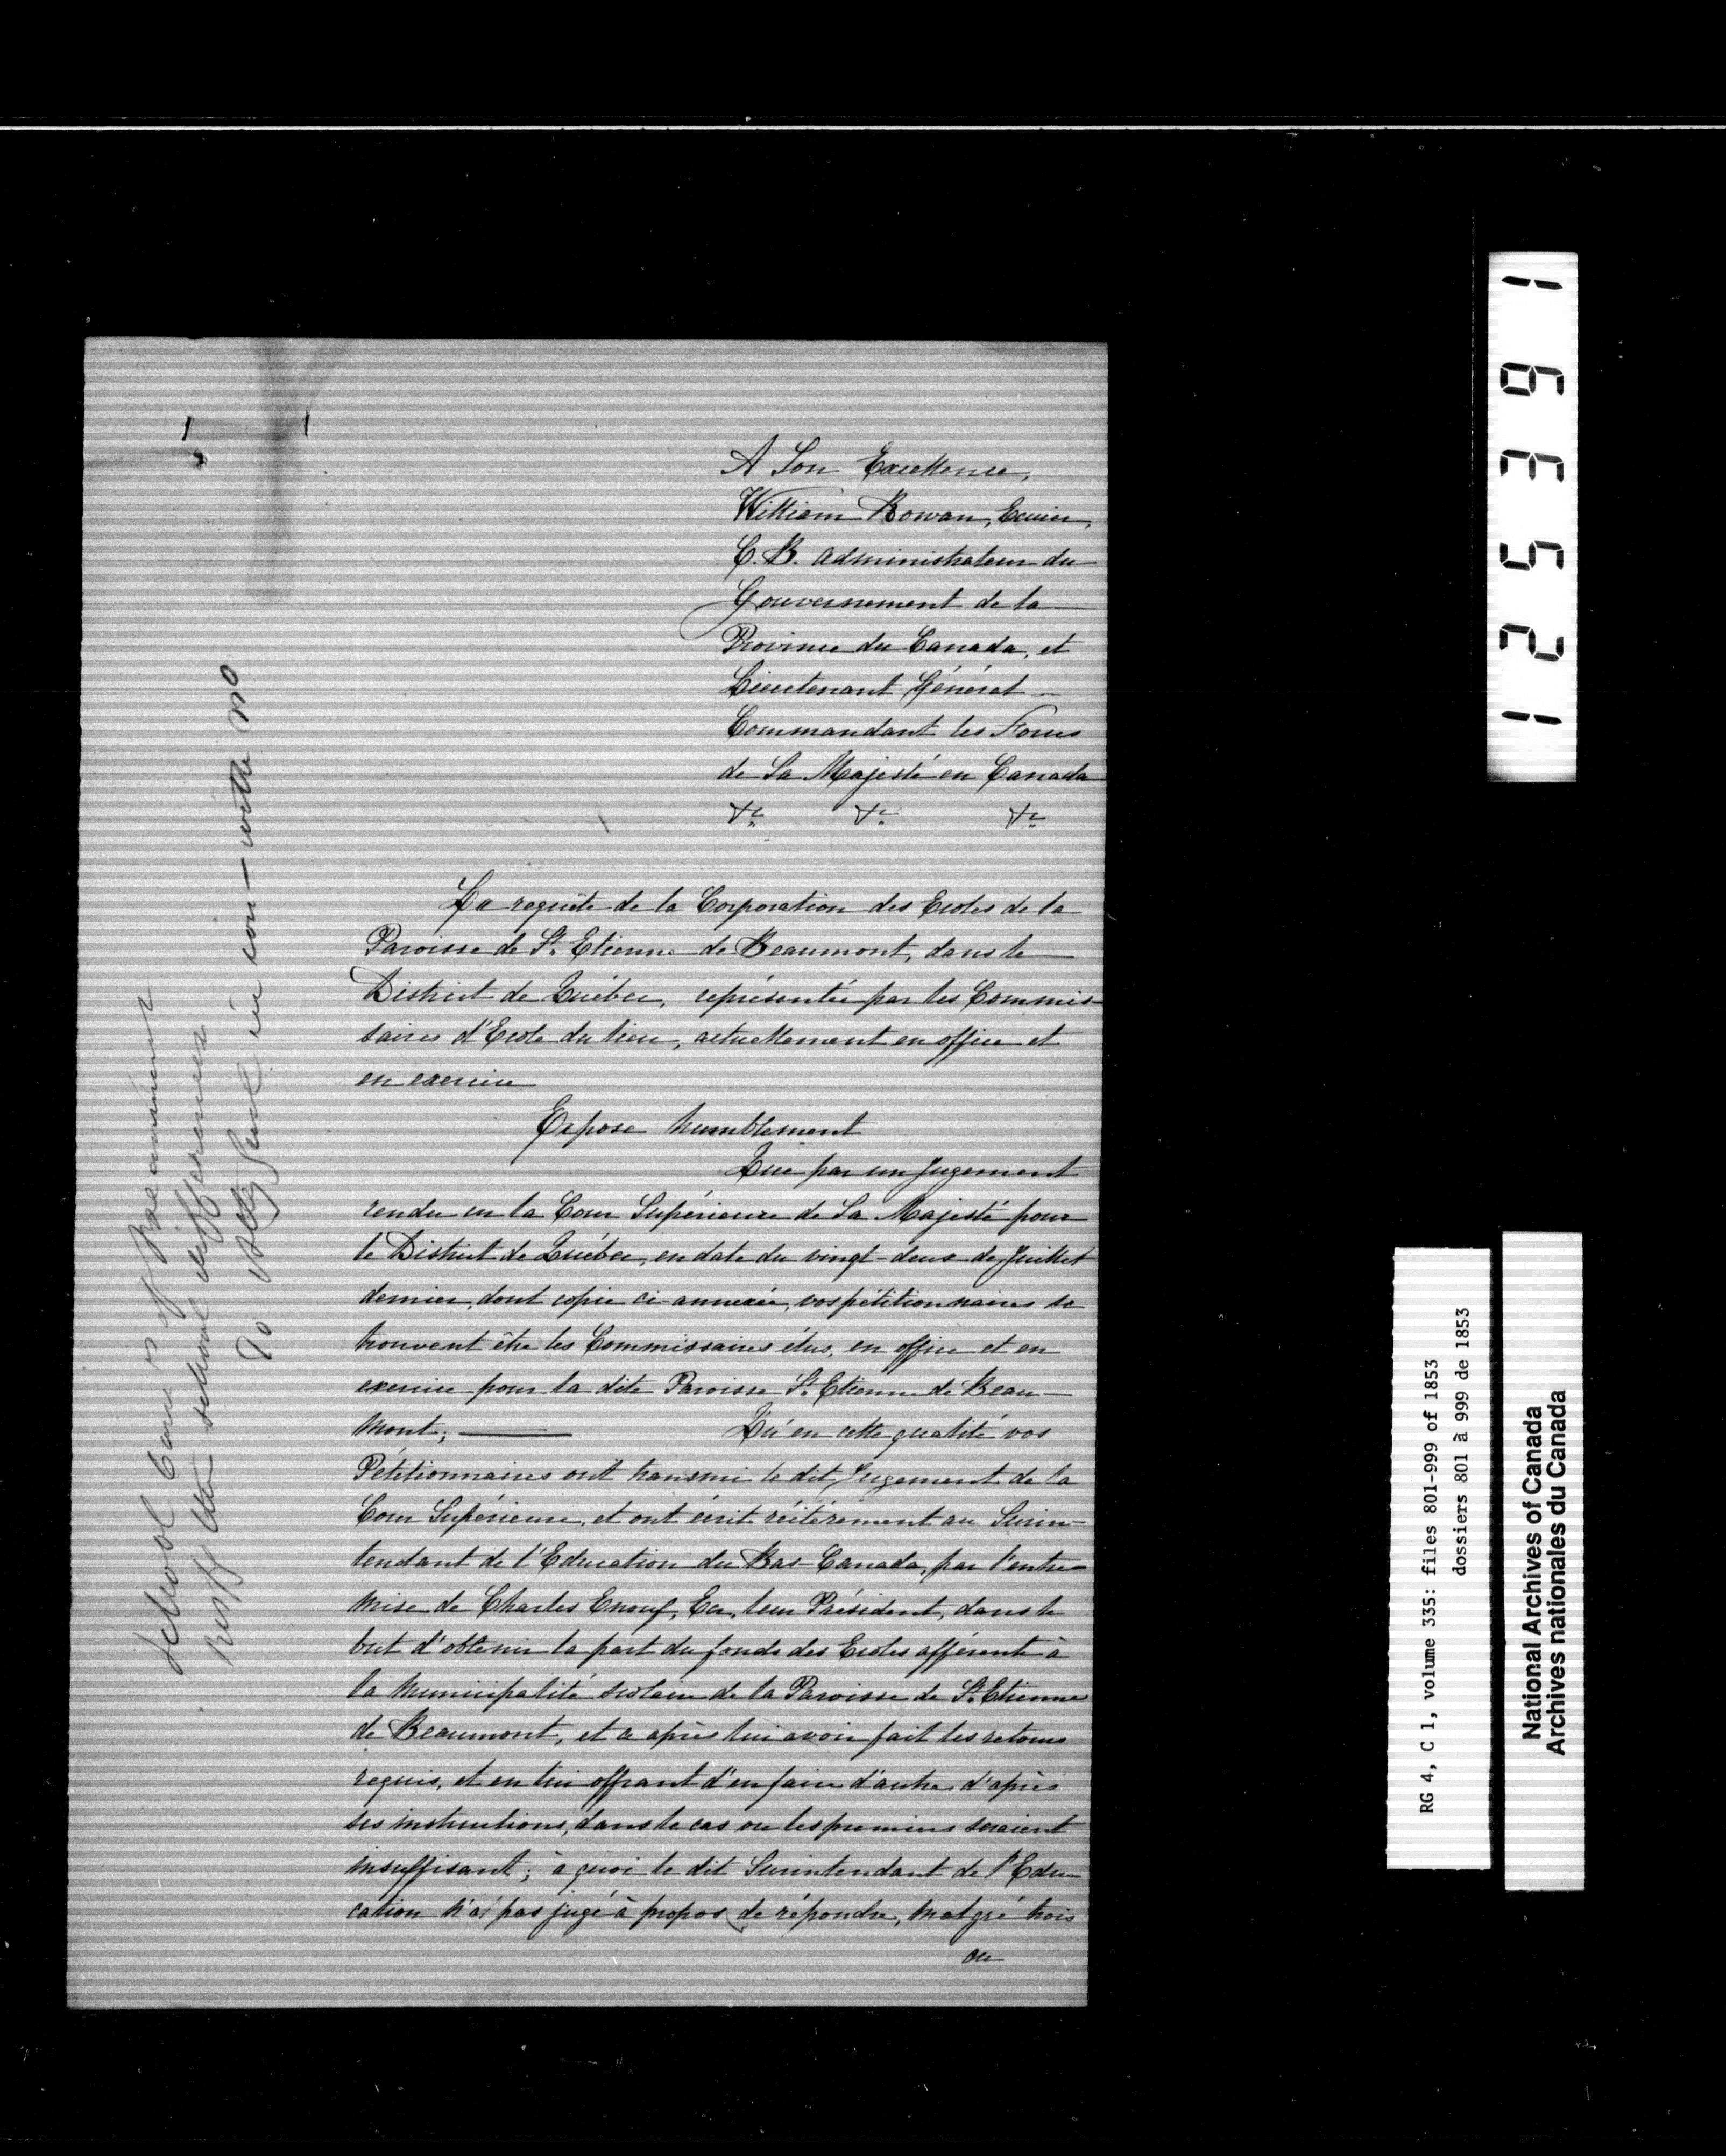 A Son Excellence,
William Rowan, Ecuier,
C.B. Administrateur du
Gouvernement de la
Province du Canada, et
Lieutenant Général
Commandant les Forces
de Sa Majesté en Canada
&c. &c. &c.
La requête de la Corporation des Ecoles de la
Paroisse de St. Etienne de Beaumont, dans le
District de Québec, représentée par les Commis-
saires d'Ecole du lieu, actuellement en office et
en exercice
Expose humblement
Que par un Jugement
rendu en la Cour Supérieure de Sa Majesté pour
le District de Québec, en date du vingt-deux de Juillet
dernier, dont copie ci-annexée, vos pétitionnaires se
trouvent être les Commissaires élus, en office et en
exercice pour la dite Paroisse St. Etienne de Beau-
mont; Qu'en cette qualité vos
Pétitionnaires ont transmi le dit Jugement de la
Cour Supérieure, et ont écrit réitérément au Surin-
tendant de l'Education du Bas-Canada, par l'entre-
mise de Charles Enouf, Ecr, leur Président, dans le
but d'obtenir la part du fonds des Ecoles afférente à
la Municipalité scolaire de la Paroisse de St. Etienne
de Beaumont, et ce après lui avoir fait les retours
requis, et en lui offrant d'en faire d'autre d'après
ses instructions, dans le cas ou les premiers seraient
insuffisant; à quoi le dit Surintendant de l'Edu-
cation n'a pas jugé à propos de répondre, malgré trois
ou
School Comrs of Beaumont
respg the school differences
To Atty Genl in con – with no
1 2 5 3 9 1
RG 4, C 1, volume 335: files 801-999 of 1853
dossiers 801 à 999 de 1853
National Archives of Canada
Archives nationales du Canada